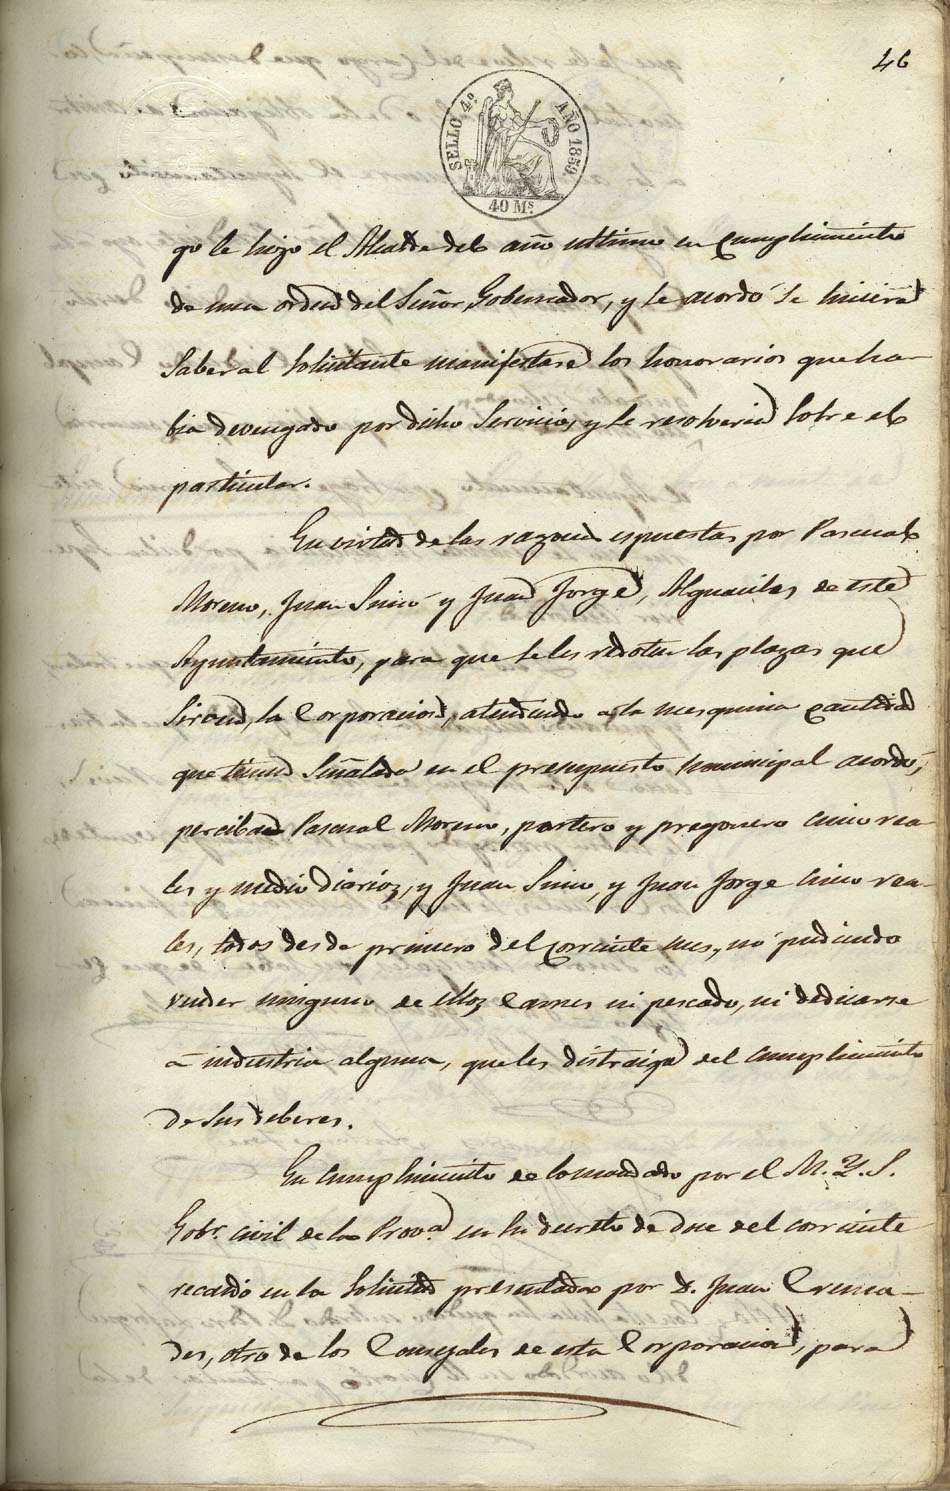 46
SELLO 4.º AÑO 1859.
40 Ms.
qe le hizo el Alcalde del año ultimo en cumplimiento
de una orden del Señor Gobernador, y se acordó se hiciera
saber al solicitante manifestase los honorarios que ha-
bia devengado por dicho servicio, y se resolveria sobre el
particular.
En virtud de las razones espuestas por Pascual
Moreno, Juan Simó y Juan Jorge, Alguaciles de este
Ayuntamiento, para que se les dote las plazas que
sirven, la Corporacion, atendiendo a la mesquina cantidad
que tienen señalada en el presupuesto municipal acordó,
perciban Pascual Moreno, portero y pregonero cinco rea-
les y medio diarios, y Juan Simo, y Juan Jorge cinco rea-
les, todos desde primero del corriente mes, nó pudiendo
vender ninguno de ellos carnes ni pescado, ni dedicarse
á industria alguna, que les distraiga del cumplimiento
de sus deberes.
En cumplimiento de lo mandado por el M. Y. S.
Gobr. civil de la Prova. en su decreto de doce del corriente
recaido en la solicitud presentada por D. Juan Crema-
des, otro de los Concejales de esta Corporacion, para